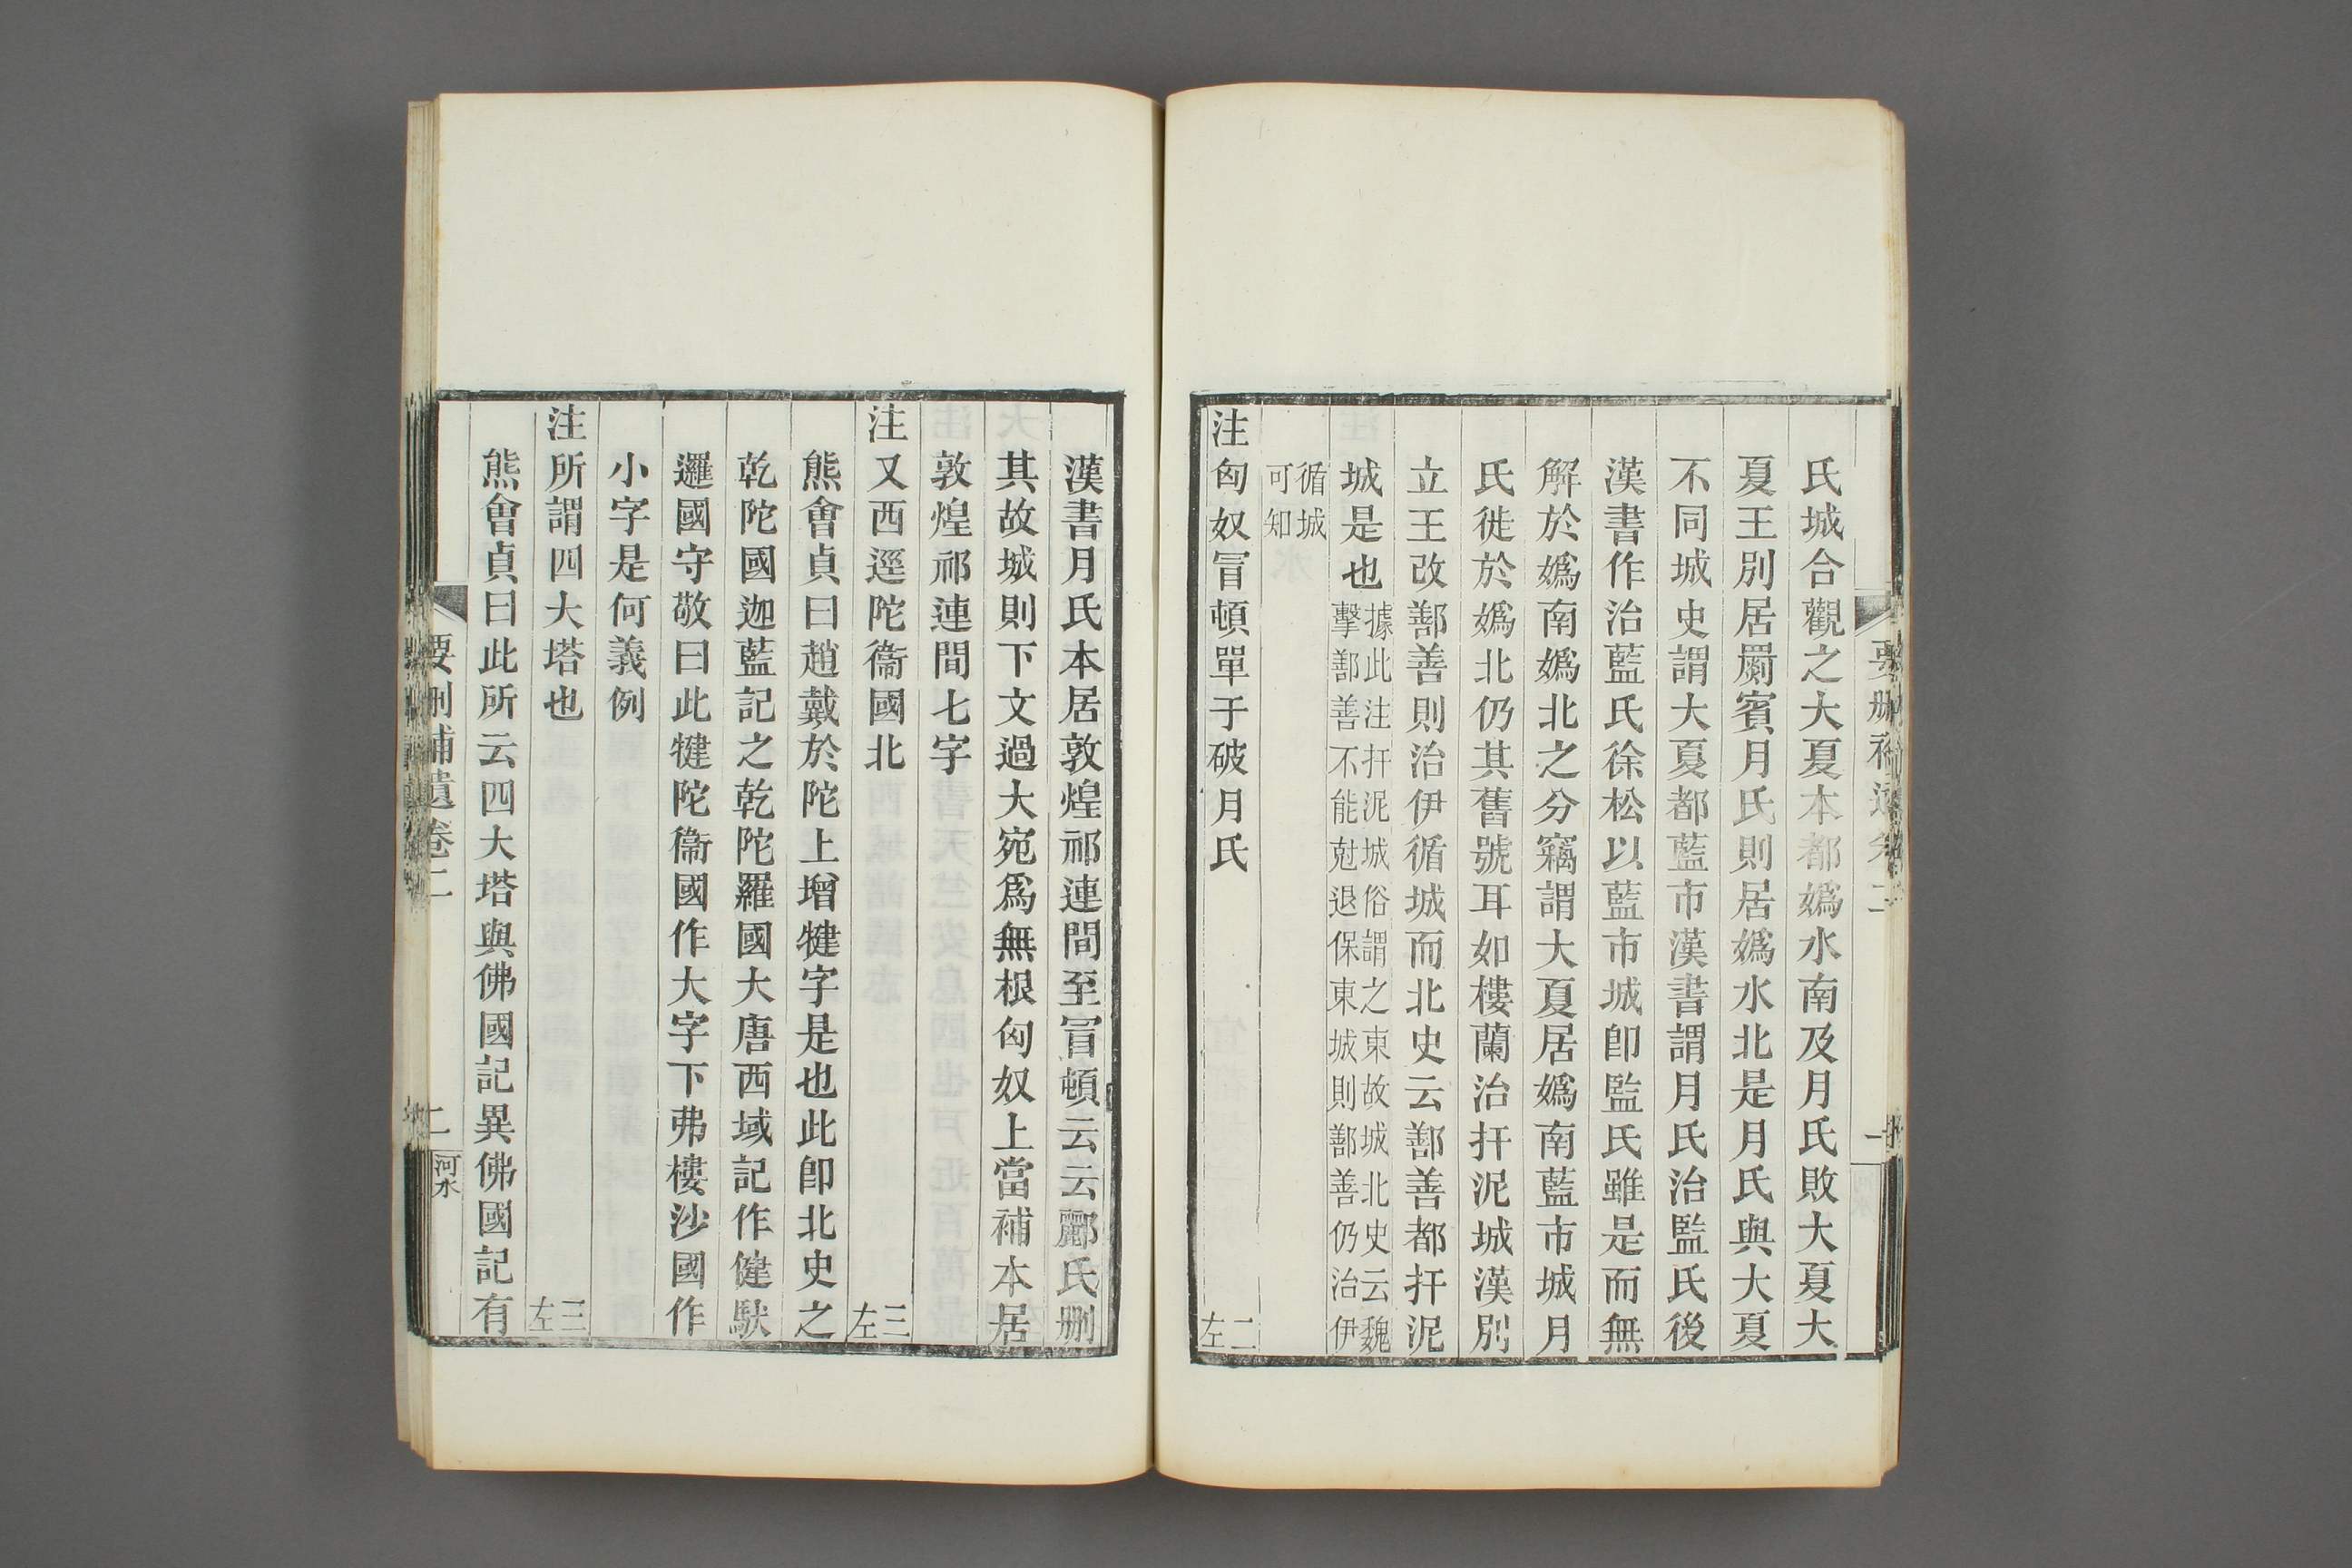 氏城合觀之大夏本都嬀水南及月氏敗大夏大
夏王別居罽賓月氏則居嬀水北是月氏與大夏
不同城史謂大夏都藍市漢書謂月氏治監氏後
漢書作治藍氏徐松以藍市城卽監氏雖是而無
解於嬀南嬀北之分竊謂大夏居嬀南藍市城月
氏徙於嬀北仍其舊號耳如樓蘭治扜泥城漢別
立王改鄯善則治伊循城而北史云鄯善都扜泥
城是也據此注扜泥城俗謂之東故城北史云魏
擊鄯善不能尅退保東城則鄯善仍治伊
循城
可知
注匈奴冒頓單于破月氏 二左
漢書月氏本居敦煌祁連間至冒頓云云酈氏刪
其故城則下文過大宛爲無根匈奴上當補本居
敦煌祁連間七字
注又西逕陀衞國北 三左
熊會貞曰趙戴於陀上增犍字是也此卽北史之
乾陀國迦藍記之乾陀羅國大唐西域記作健馱
邏國守敬曰此犍陀衞國作大字下弗樓沙國作
小字是何義例
注所謂四大塔也 三左
熊會貞曰此所云四大塔與佛國記異佛國記有
要刪補遺卷二 二 河水